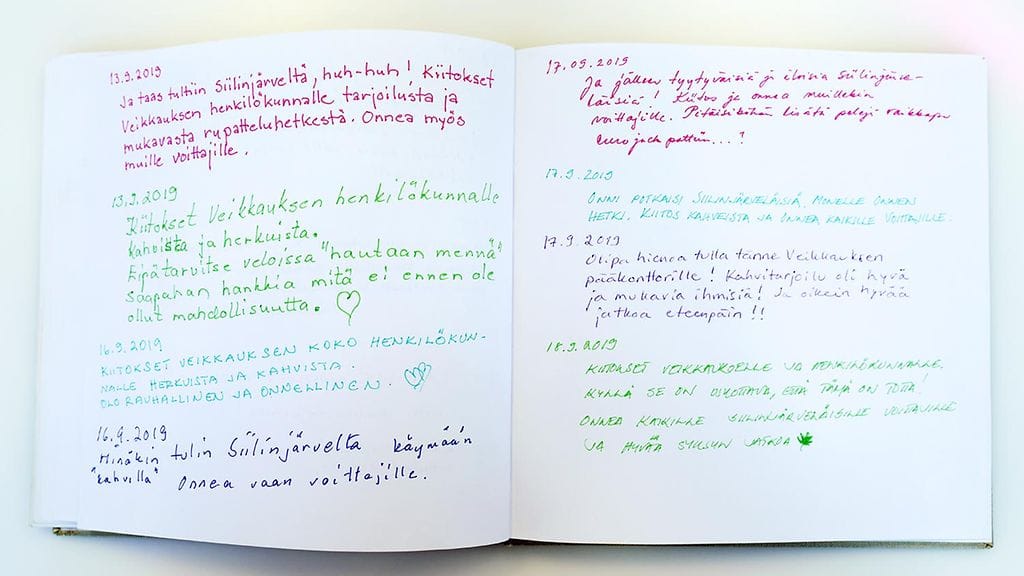 13.9.2019
Ja taas tultiin Siilinjärveltä, huh-huh! Kiitokset
Veikkauksen henkilökunnalle tarjoilusta ja
mukavasta rupatteluhetkestä. Onnea myös
muille voittajille.
13.9.2019
Kiitokset Veikkauksen henkilökunnalle
kahvista ja herkuista.
Eipä tarvitse veloissa "hautaan mennä"
saapahan hankkia mitä ei ennen ole
ollut mahdollisuutta.
16.9.2019
KIITOKSET VEIKKAUKSEN KOKO HENKILÖKUN-
NALLE HERKUISTA JA KAHVISTA.
OLO RAUHALLINEN JA ONNELLINEN.
16.9.2019
Minäkin tulin Siilinjärvelta käymään
"kahvilla" Onnea vaan voittajille.
17.09.2019
Ja jälleen tyytyväisiä ja iloisia siilinjärve-
läisiä! Kiitos ja onnea muillekin
voittajille. Pitäisiköhän lisätä pelejä vaikkapa
eurojack pottiin...?
17.9.2019
ONNI POTKAISI SIILINJÄRVELÄISIÄ. MONELLE ONNEN
HETKI. KIITOS KAHVEISTA JA ONNEA KAIKILLE VOITTAJILLE.
17.9.2019
Olipa hienoa tulla tänne Veikkauksen
pääkonttorille! Kahvitarjoilu oli hyvä
ja mukavia ihmisiä! Ja oikein hyvää
jatkoa eteenpäin!!
18.9.2019
KIITOKSET VEIKKAUKSELLE JA HENKILÖKUNNALLE.
KYLLÄ SE ON USKOTTAVA, ETTÄ TÄMÄ ON TOTTA!
ONNEA KAIKILLE SIILINJÄRVELÄISILLE VOITTAJILLE
JA HYVÄÄ SYKSYN JATKOA